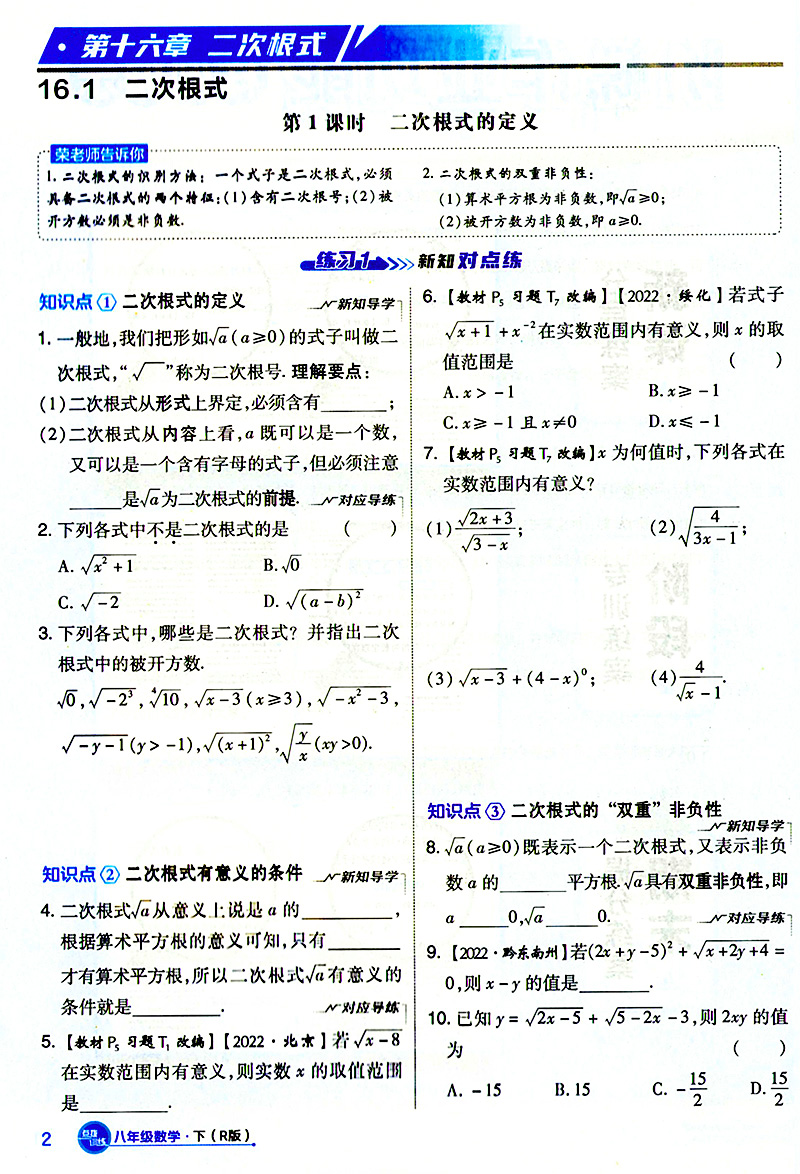 第十六章 二次根式
16.1 二次根式
第1课时 二次根式的定义
荣老师告诉你
1. 二次根式的识别方法：一个式子是二次根式,必须
具备二次根式的两个特征:(1)含有二次根号;(2)被
开方数必须是非负数.
2. 二次根式的双重非负性:
(1)算术平方根为非负数,即√a≥0;
(2)被开方数为非负数,即a≥0.
练习1 新知对点练
知识点① 二次根式的定义 新知导学
1. 一般地,我们把形如√a(a≥0)的式子叫做二
次根式,“√ ”称为二次根号. 理解要点:
(1)二次根式从形式上界定,必须含有______;
(2)二次根式从内容上看,a既可以是一个数,
又可以是一个含有字母的式子,但必须注意
______是√a为二次根式的前提. 对应导练
2. 下列各式中不是二次根式的是 ( )
A. √(x²+1) B. √0
C. √(-2) D. √((a-b)²)
3. 下列各式中,哪些是二次根式? 并指出二次
根式中的被开方数.
√0,√(-2³),∜10,√(x-3)(x≥3),√(-x²-3),
√(-y-1)(y>-1),√((x+1)²),√(y/x)(xy>0).
知识点② 二次根式有意义的条件 新知导学
4. 二次根式√a从意义上说是a的________,
根据算术平方根的意义可知,只有________
才有算术平方根,所以二次根式√a有意义的
条件就是________. 对应导练
5.【教材P₅ 习题T₁ 改编】【2022·北京】若√(x-8)
在实数范围内有意义,则实数x的取值范围
是________.
6.【教材P₅ 习题T₇ 改编】【2022·绥化】若式子
√(x+1)+x⁻²在实数范围内有意义,则x的取
值范围是 ( )
A. x>-1 B. x≥-1
C. x≥-1且x≠0 D. x≤-1
7.【教材P₅ 习题T₇ 改编】x为何值时,下列各式在
实数范围内有意义?
(1)√(2x+3)/√(3-x); (2)√(4/(3x-1));
(3)√(x-3)+(4-x)⁰; (4)4/(√x-1).
知识点③ 二次根式的“双重”非负性
新知导学
8. √a(a≥0)既表示一个二次根式,又表示非负
数a的______平方根.√a具有双重非负性,即
a______0,√a______0. 对应导练
9.【2022·黔东南州】若(2x+y-5)²+√(x+2y+4)=
0,则x-y的值是______.
10. 已知y=√(2x-5)+√(5-2x)-3,则2xy的值
为 ( )
A. -15 B. 15 C. -15/2 D. 15/2
2 八年级数学·下(R版)